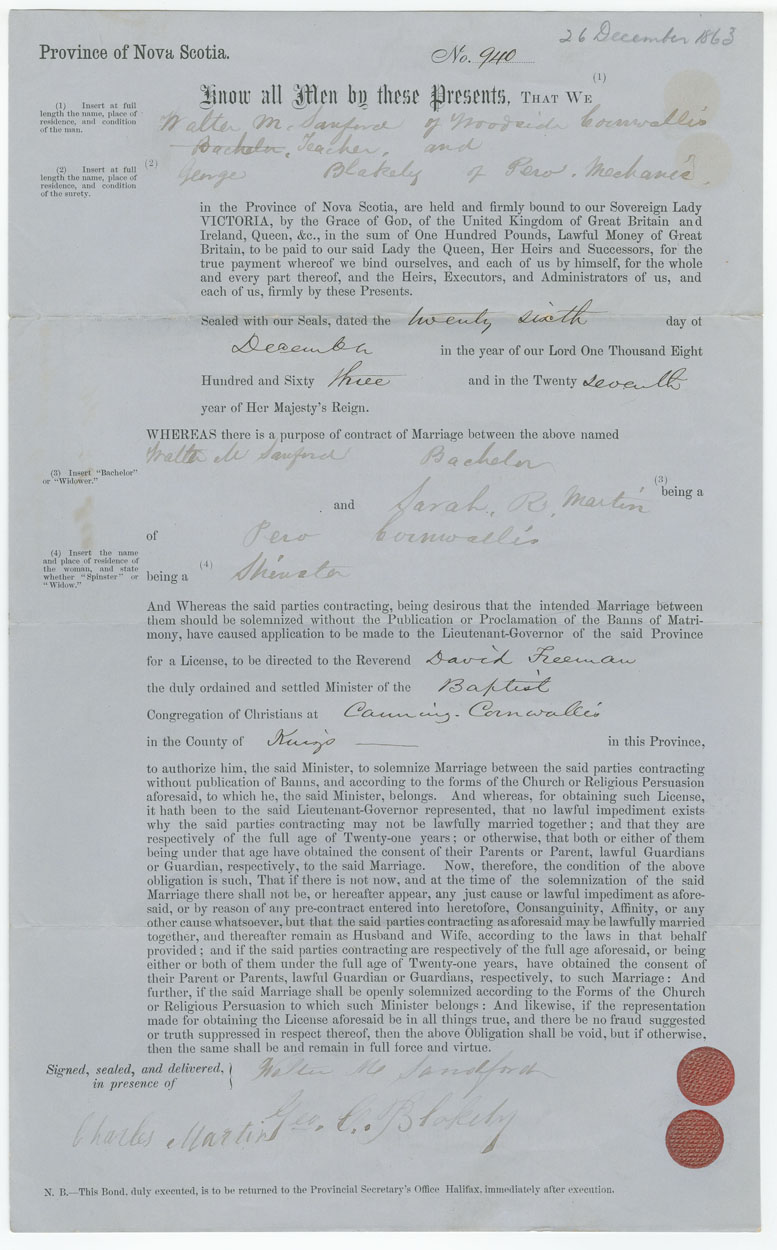 26 December 1863
Province of Nova Scotia.
No. 940
(1)
Know all Men by these Presents, That We
(1) Insert at full
length the name, place of
residence, and condition
of the man.
Walter M. Sanford of Woodside Cornwallis
Bachelor, Teacher, and
(2) Insert at full
length the name, place of
residence, and condition
of the surety.
(2)
George Blakely of Pero. Mechanic.
in the Province of Nova Scotia, are held and firmly bound to our Sovereign Lady
VICTORIA, by the Grace of God, of the United Kingdom of Great Britain and
Ireland, Queen, &c., in the sum of One Hundred Pounds, Lawful Money of Great
Britain, to be paid to our said Lady the Queen, Her Heirs and Successors, for the
true payment whereof we bind ourselves, and each of us by himself, for the whole
and every part thereof, and the Heirs, Executors, and Administrators of us, and
each of us, firmly by these Presents.
Sealed with our Seals, dated the twenty sixth day of
December in the year of our Lord One Thousand Eight
Hundred and Sixty three and in the Twenty seventh
year of Her Majesty's Reign.
WHEREAS there is a purpose of contract of Marriage between the above named
Walter M Sanford Bachelor
(3) Insert "Bachelor"
or "Widower."
(3)
being a
and Sarah. R. Martin
of Pero Cornwallis
(4) Insert the name
and place of residence of
the woman, and state
whether "Spinster" or
"Widow."
being a (4) Spinster
And Whereas the said parties contracting, being desirous that the intended Marriage between
them should be solemnized without the Publication or Proclamation of the Banns of Matri-
mony, have caused application to be made to the Lieutenant-Governor of the said Province
for a License, to be directed to the Reverend David Freeman
the duly ordained and settled Minister of the Baptist
Congregation of Christians at Canning. Cornwallis
in the County of Kings in this Province,
to authorize him, the said Minister, to solemnize Marriage between the said parties contracting
without publication of Banns, and according to the forms of the Church or Religious Persuasion
aforesaid, to which he, the said Minister, belongs. And whereas, for obtaining such License,
it hath been to the said Lieutenant-Governor represented, that no lawful impediment exists
why the said parties contracting may not be lawfully married together; and that they are
respectively of the full age of Twenty-one years; or otherwise, that both or either of them
being under that age have obtained the consent of their Parents or Parent, lawful Guardians
or Guardian, respectively, to the said Marriage. Now, therefore, the condition of the above
obligation is such, That if there is not now, and at the time of the solemnization of the said
Marriage there shall not be, or hereafter appear, any just cause or lawful impediment as afore-
said, or by reason of any pre-contract entered into heretofore, Consanguinity, Affinity, or any
other cause whatsoever, but that the said parties contracting as aforesaid may be lawfully married
together, and thereafter remain as Husband and Wife, according to the laws in that behalf
provided; and if the said parties contracting are respectively of the full age aforesaid, or being
either or both of them under the full age of Twenty-one years, have obtained the consent of
their Parent or Parents, lawful Guardian or Guardians, respectively, to such Marriage: And
further, if the said Marriage shall be openly solemnized according to the Forms of the Church
or Religious Persuasion to which such Minister belongs: And likewise, if the representation
made for obtaining the License aforesaid be in all things true, and there be no fraud suggested
or truth suppressed in respect thereof, then the above Obligation shall be void, but if otherwise,
then the same shall be and remain in full force and virtue.
Signed, sealed, and delivered,
in presence of
Walter M Sandford
Geo. C. Blakely
Charles Martin
N. B.—This Bond, duly executed, is to be returned to the Provincial Secretary's Office Halifax, immediately after execution.